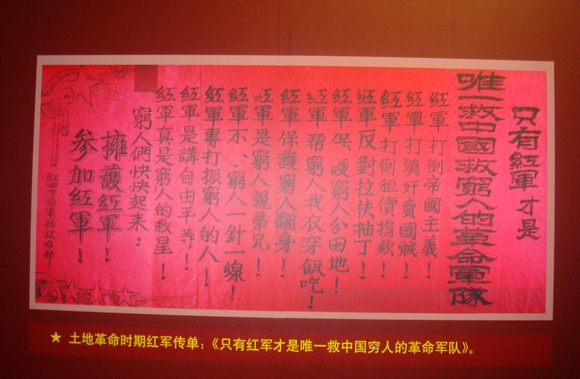 只有紅軍才是
唯一救中國救窮人的革命軍隊
紅軍打倒帝國主義！
紅軍打漢奸賣國賊！
紅軍打倒租債捐款！
紅軍反對拉伕抽丁！
紅軍保護窮人分田地！
紅軍帮窮人找衣穿飯吃！
紅軍保護窮人翻身！
紅軍是窮人親弟兄！
紅軍不窮人一針一線！
紅軍專打振窮人的人！
紅軍是講自由平等！
紅軍真是窮人的救星！
窮人們快快起來：
擁護紅軍！
參加紅軍！
紅四方面軍總政治部！
★ 土地革命时期红军传单：《只有红军才是唯一救中国穷人的革命军队》。